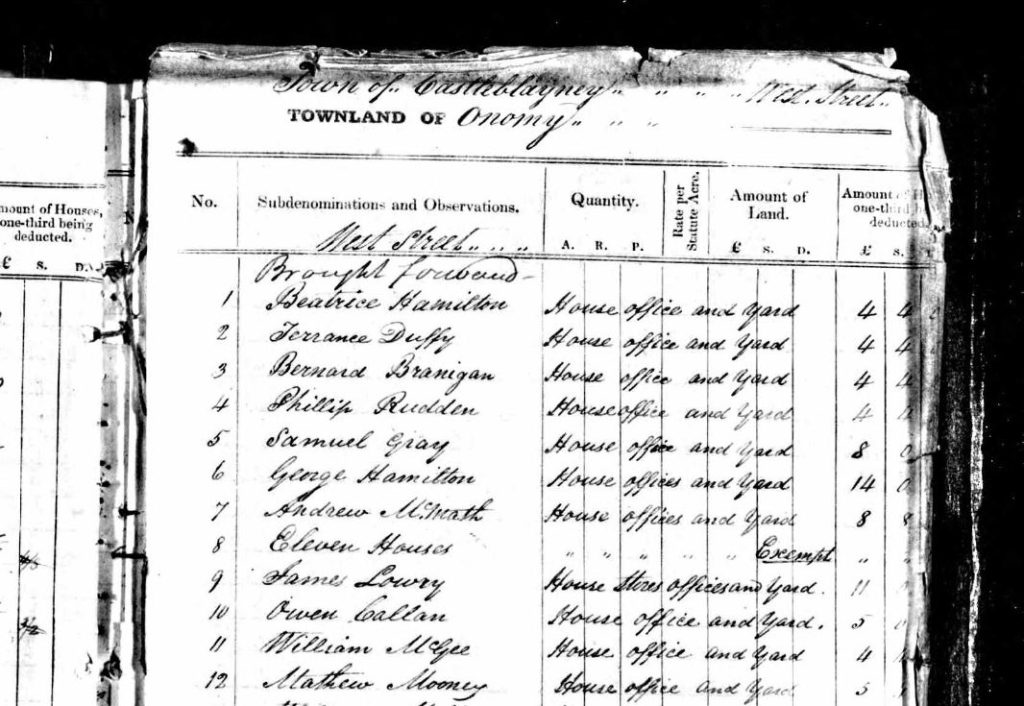 Town of Castleblayney " " " " West Street "
TOWNLAND OF Onomy " " "
Amount of Houses, one-third being deducted.
£ S. D.
No. Subdenominations and Observations. Quantity. Rate per Statute Acre. Amount of Land. Amount of one-third deducted.
West Street " " " A. R. P. £ S. D. £ S.
Brought forward
1 Beatrice Hamilton House office and Yard 4 4
2 Terrance Duffy House office and Yard 4 4
3 Bernard Branigan House office and Yard 4 4
4 Phillip Rudden House office and Yard 4
5 Samuel Gray House office and Yard 8 0
6 George Hamilton House offices and Yard 14 0
7 Andrew McGrath House offices and Yard 8 8
8 Eleven Houses " " " " " Exempt " "
9 James Lowry House Stores offices and Yard. 11
10 Owen Callan House office and Yard. 5
11 William McGee House office and Yard 4
12 Mathew Mooney House office and Yard 5